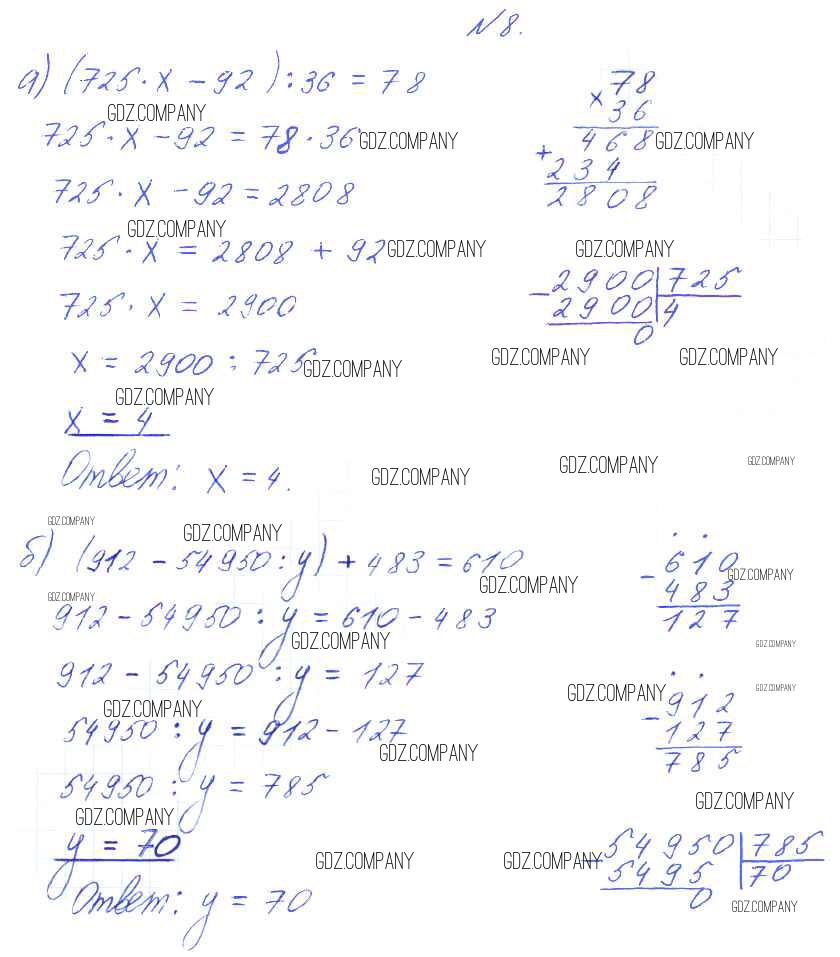 №8.
а) (725·x − 92) : 36 = 78
GDZ.COMPANY
725·x − 92 = 78·36 GDZ.COMPANY
725·x − 92 = 2808
GDZ.COMPANY
725·x = 2808 + 92 GDZ.COMPANY
725·x = 2900
x = 2900 : 725 GDZ.COMPANY
GDZ.COMPANY
x = 4
Ответ: x = 4.
78
× 36
468 GDZ.COMPANY
+ 234
2808
GDZ.COMPANY
− 2900 | 725
2900 | 4
0
GDZ.COMPANY GDZ.COMPANY
GDZ.COMPANY GDZ.COMPANY GDZ.COMPANY
GDZ.COMPANY GDZ.COMPANY
б) (912 − 54950 : y) + 483 = 610
GDZ.COMPANY GDZ.COMPANY
912 − 54950 : y = 610 − 483
GDZ.COMPANY
912 − 54950 : y = 127
GDZ.COMPANY
54950 : y = 912 − 127
GDZ.COMPANY
54950 : y = 785
GDZ.COMPANY
y = 70
Ответ: y = 70
− 610
GDZ.COMPANY
483
127
GDZ.COMPANY
GDZ.COMPANY GDZ.COMPANY
− 912
127
785
GDZ.COMPANY
GDZ.COMPANY GDZ.COMPANY
− 54950 | 785
5495 | 70
0 GDZ.COMPANY